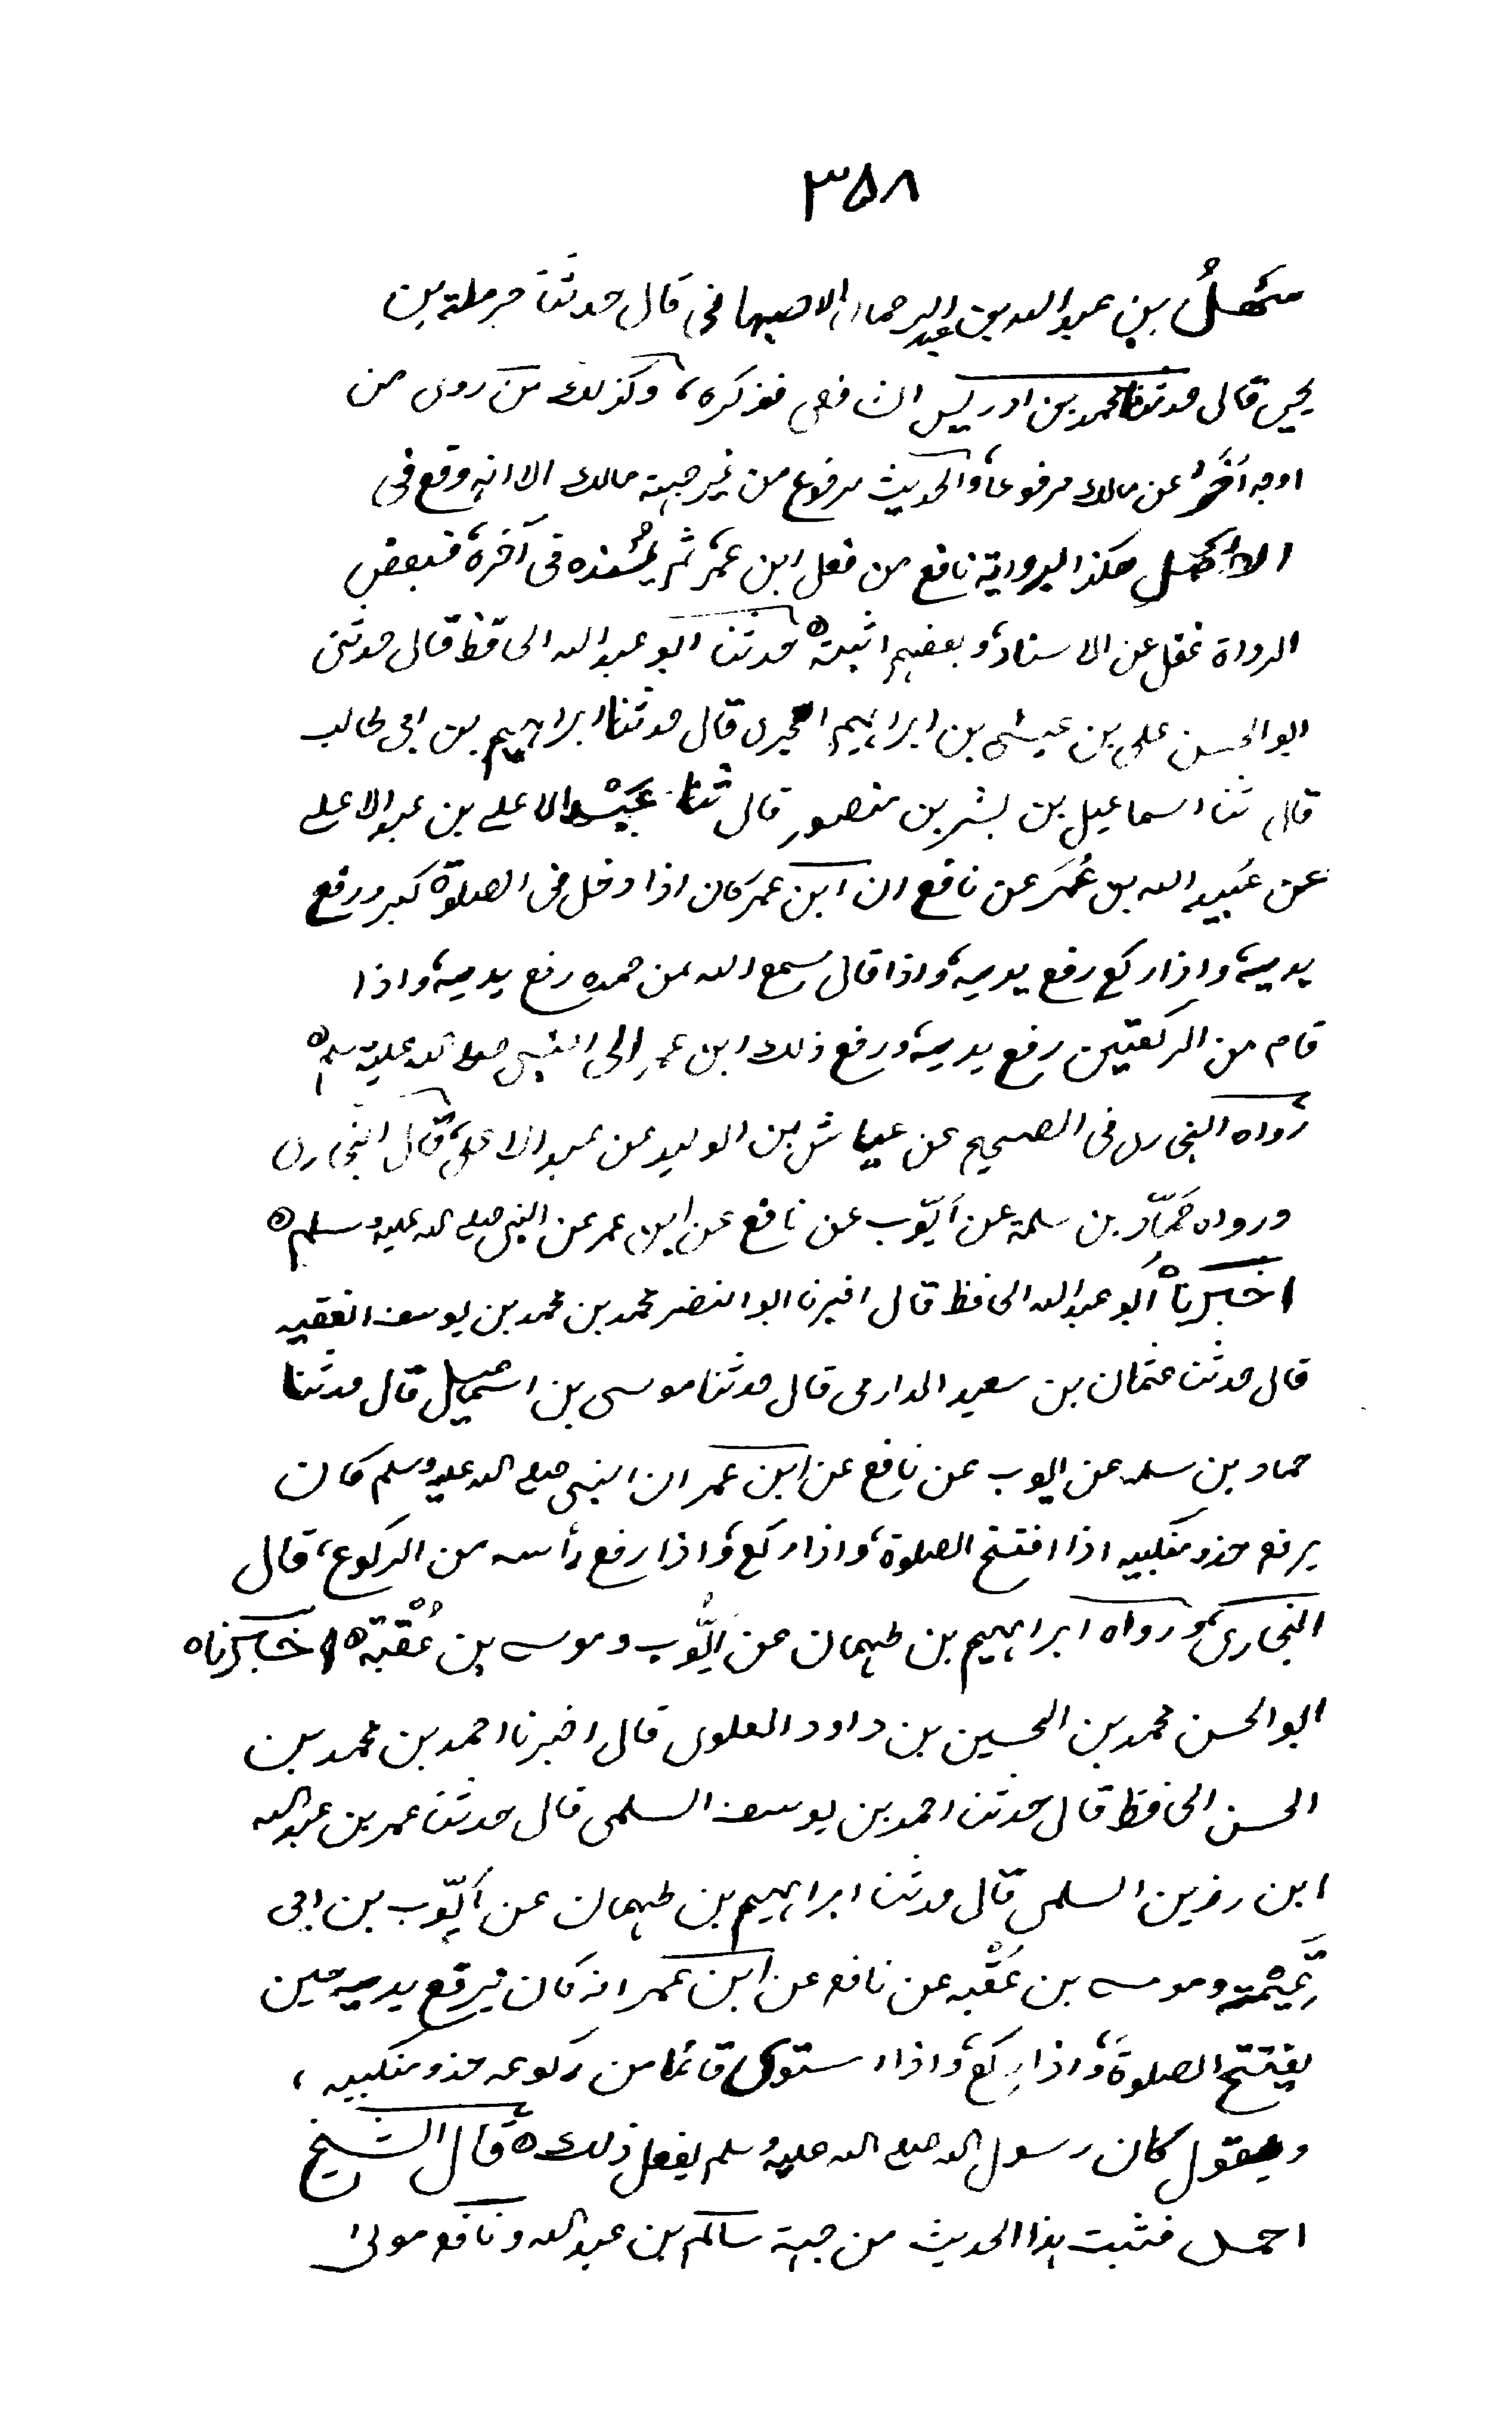 ٣٥٨
سهلُ بن عبد الله بن عبد الرحمان الاصبهانى قال حدثنا حرملة بن
يحيى قال حدثنا محمد بن ادريس الشافعى فذكره، وكذلك من روى من
اوجه اُخر عن مالك مرفوعا، والحديث مرفوع من غير جهة مالك الا انه وقع فى
الاصل هكذا لرواية نافع من فعل ابن عمر، ثم يُسْنده فى آخره، فبعض
الرواة غفل عن الاسناد، وبعضهم اثبته ه حدثنا ابو عبد الله الحافظ قال حدثنى
ابو الحسن على بن عيسى بن ابراهيم الحيرى قال حدثنا ابراهيم بن ابى طالب
قال ثنا اسماعيل بن بشر بن منصور قال ثنا عَبْد الاعلى بن عبد الاعلى
عن عُبيد الله بن عُمَر عن نافع ان ابن عمر كان اذا دخل فى الصلوة كبر ورفع
يديه، واذا ركع رفع يديه، واذا قال سمع الله لمن حمده رفع يديه، واذا
قام من الركعتين رفع يديه، ورفع ذلك ابن عمر الى النبى صلى الله عليه وسلم ه
رواه البخارى فى الصحيح عن عياش بن الوليد عن عبد الاعلى، قال البخارى
ورواه حَمّاد بن سلمة عن اَيّوب عن نافع عن ابن عمر عن النبى صلى الله عليه وسلم ه
اخبرنا اَبُو عبد الله الحافظ قال اخبرنا ابو النضر محمد بن محمد بن يوسف الفقيه
قال حدثنا عثمان بن سعيد الدارمى قال حدثنا موسى بن اسمعيل قال حدثنا
حماد بن سلمه عن ايوب عن نافع عن ابن عمر ان النبى صلى الله عليه وسلم كان
يرفع حذو منكبيه اذا افتتح الصلوة، واذا ركع، واذا رفع رأسه من الركوع، قال
البخارى، ورواه ابراهيم بن طهمان عن ايُّوب وموسى بن عُقْبَة ه اخبرناه
ابو الحسن محمد بن الحسين بن داود العلوى قال اخبرنا احمد بن محمد بن
الحسن الحافظ قال حدثنا احمد بن يوسف السلمى قال حدثنا عمر بن عبد الله
ابن رزين السلمى قال حدثنا ابراهيم بن طهمان عن اَيّوب بن ابى
تَمِيْمَة وموسى بن عُقْبه عن نافع عن ابن عمر انه كان يرفع يديه حين
يفتتح الصلوة، واذا ركع، واذا استوى قائما من ركوعه حذو منكبيه،
ويقول كان رسول الله صلى الله عليه وسلم يفعل ذلك ه قال الشيخ
احمد فثبت هذا الحديث من جهة سالم بن عبد الله ونافع مولى